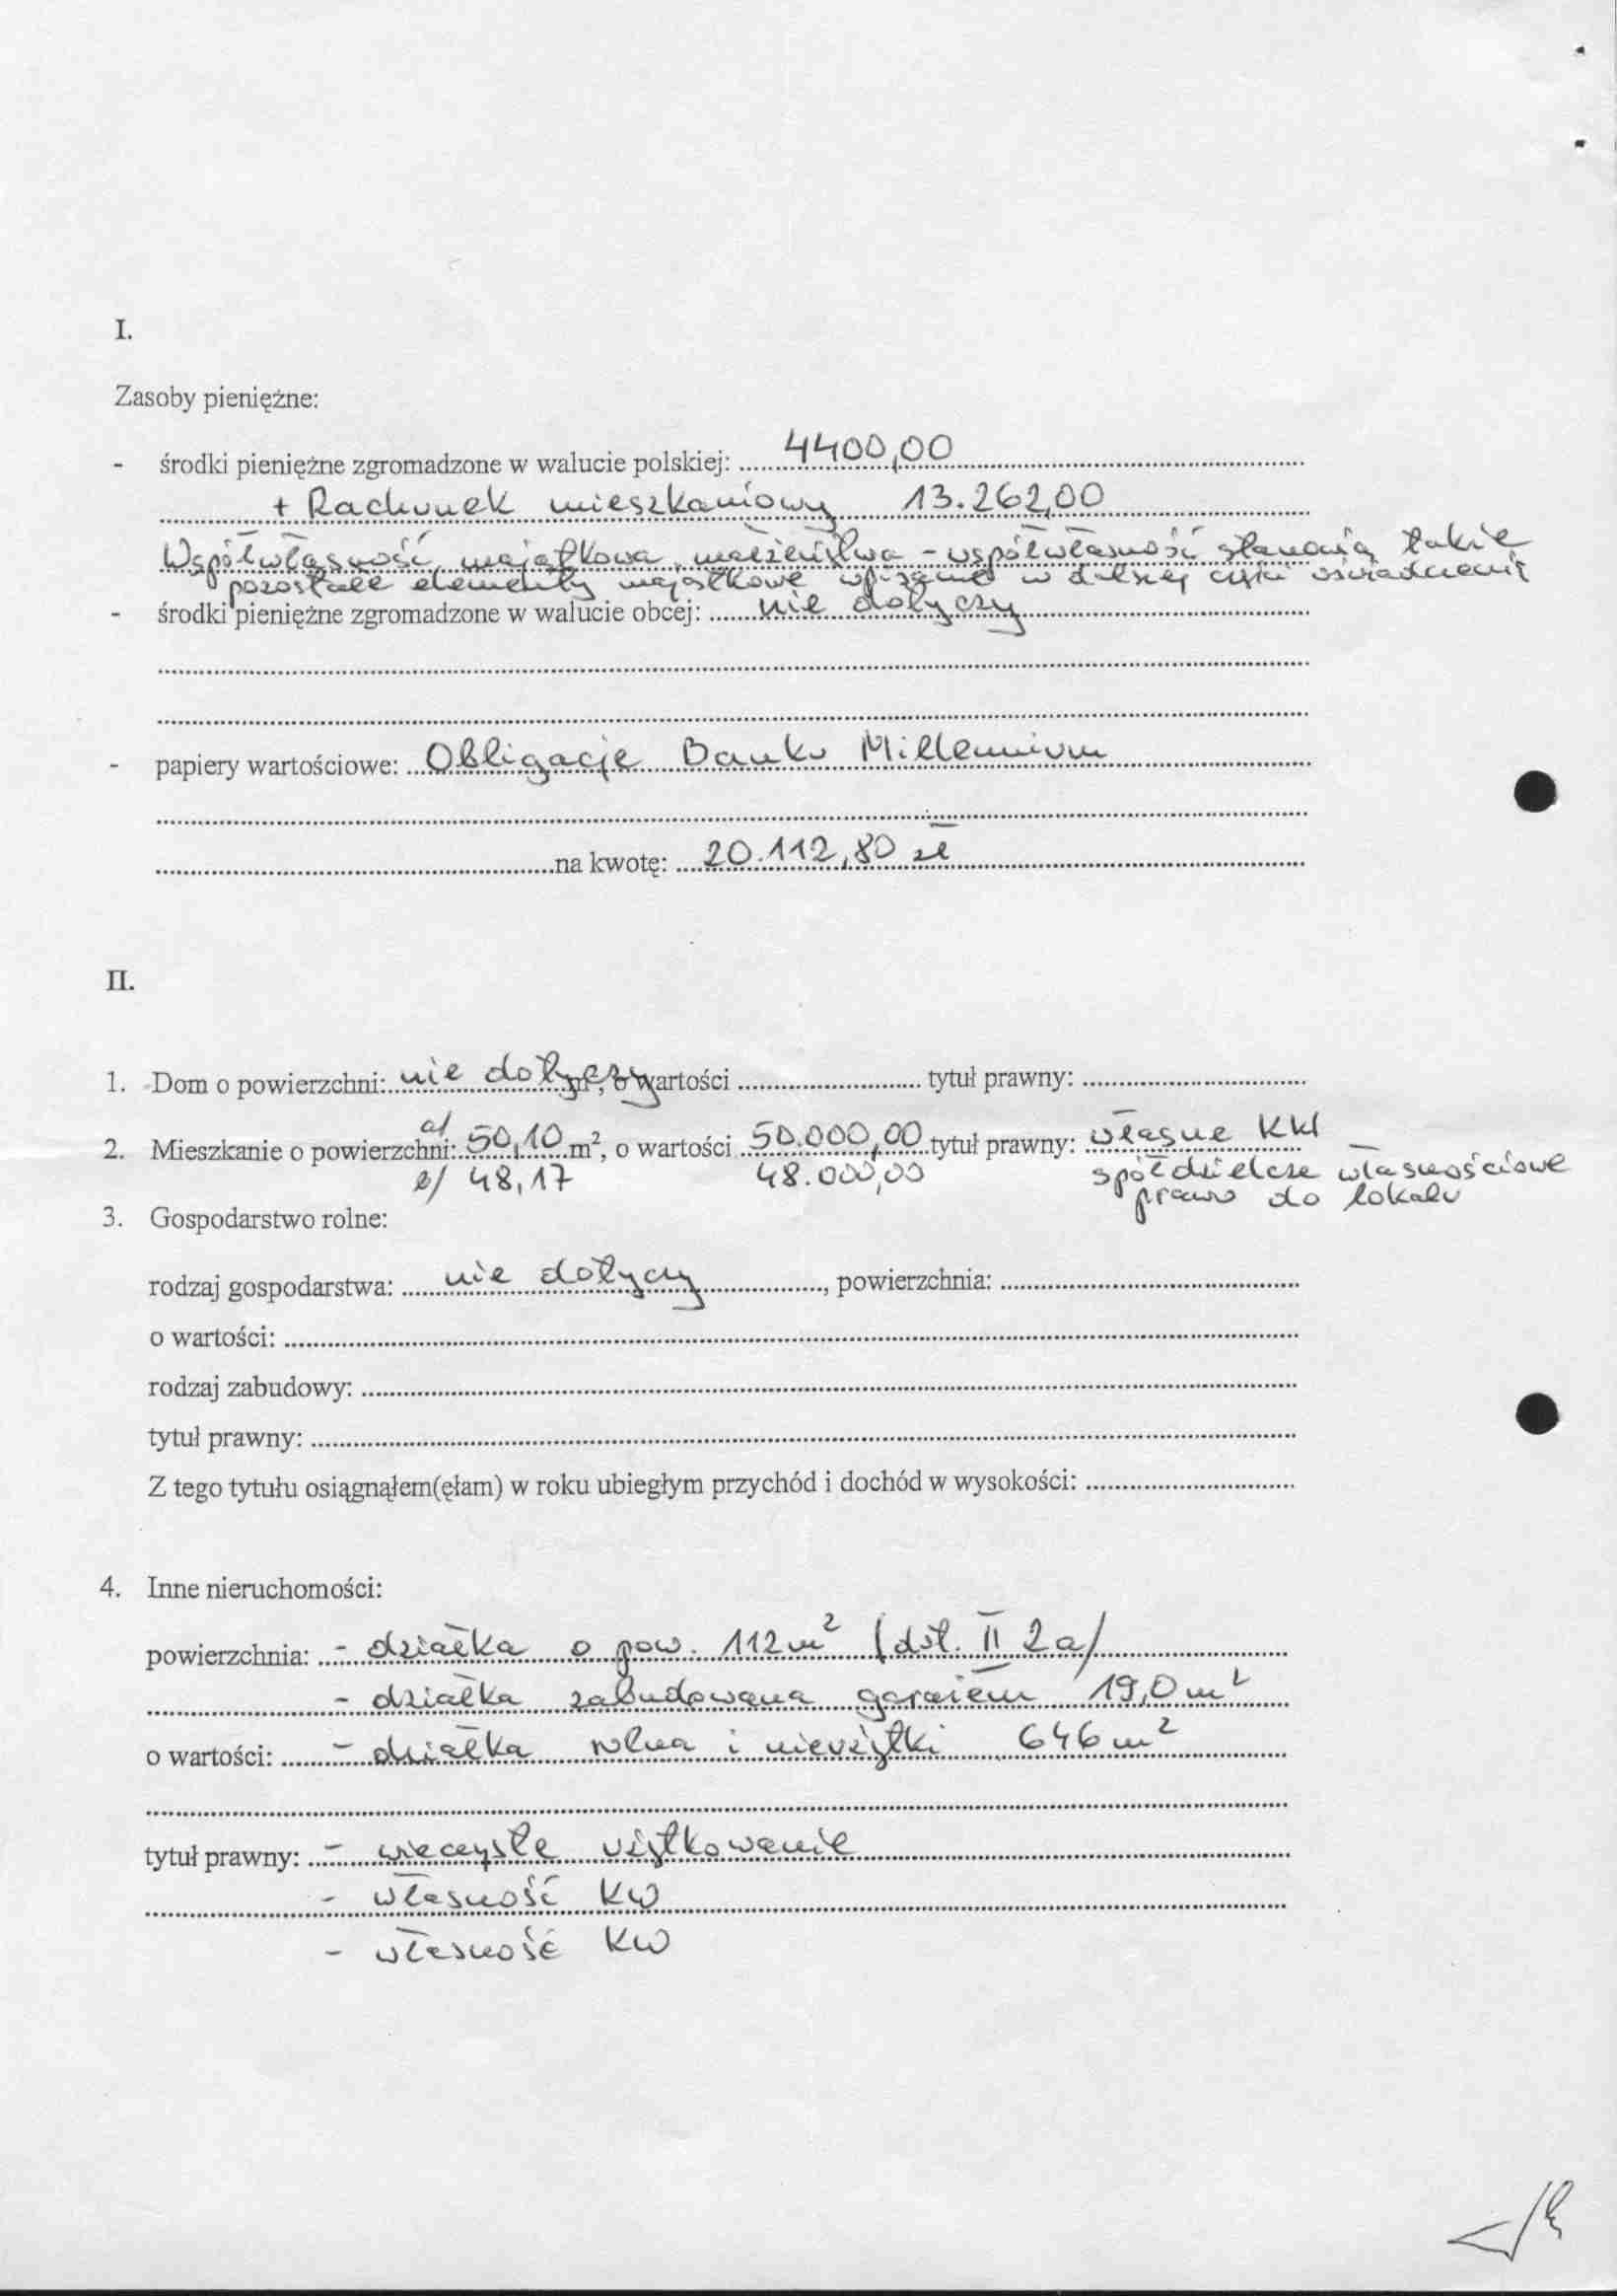 I.
Zasoby pieniężne:
- środki pieniężne zgromadzone w walucie polskiej: 4400,00
+ Rachunek mieszkaniowy 13.262,00
Współwłasność majątkowa małżeństwa - współwłasność stanowią także
pozostałe elementy majątkowe wpisane w dalszej części oświadczenia
- środki pieniężne zgromadzone w walucie obcej: nie dotyczy
- papiery wartościowe: Obligacje Banku Millennium
na kwotę: 20.112,80 zł
II.
1. Dom o powierzchni: nie dotyczy m², o wartości tytuł prawny:
2. Mieszkanie o powierzchni: a/ 50,10 m², o wartości 50.000,00 tytuł prawny: własne KW
b/ 48,17 48.000,00 spółdzielcze własnościowe
prawo do lokalu
3. Gospodarstwo rolne:
rodzaj gospodarstwa: nie dotyczy, powierzchnia:
o wartości:
rodzaj zabudowy:
tytuł prawny:
Z tego tytułu osiągnąłem(ęłam) w roku ubiegłym przychód i dochód w wysokości:
4. Inne nieruchomości:
powierzchnia: - działka o pow. 112 m² (dot. II 2a/
- działka zabudowana garażem 19,0 m²
o wartości: - działka rolna i nieużytki 646 m²
tytuł prawny: - wieczyste użytkowanie
- własność KW
- własność KW